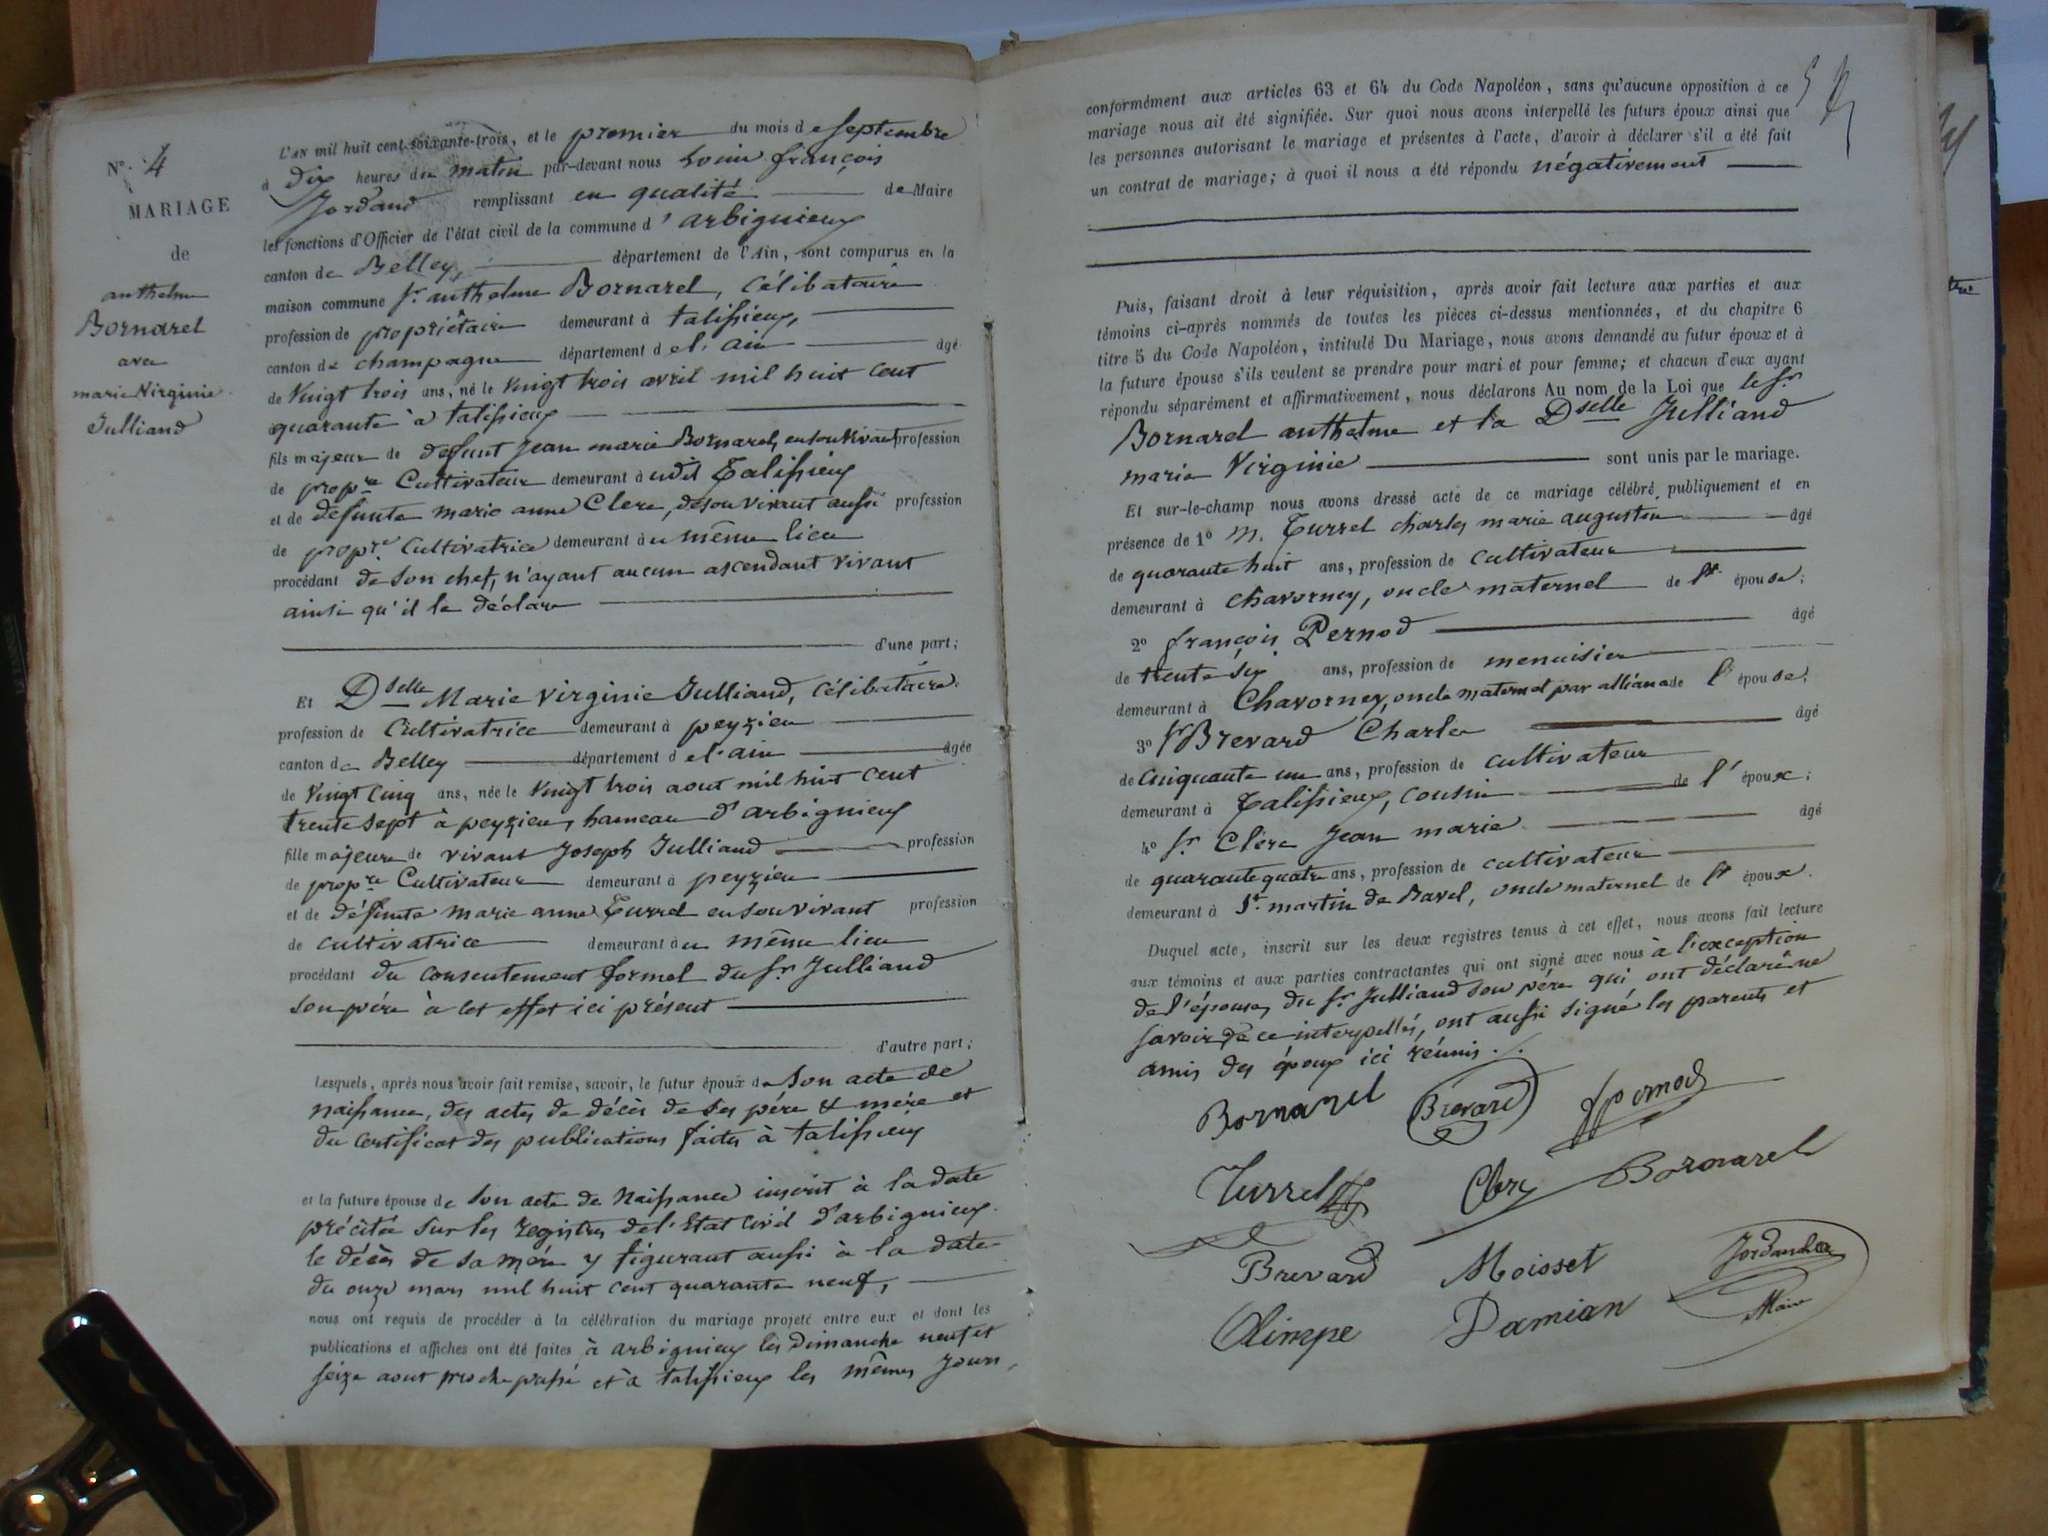 N° 4
MARIAGE
de
anthelme
Bornarel
avec
marie Virginie
Julliand
L'AN mil huit cent soixante-trois, et le premier du mois de septembre
à dix heures du matin par-devant nous Louis françois
Jordand remplissant en qualité de Maire
les fonctions d'Officier de l'état civil de la commune d'arbignieux
canton de Belley, département de l'Ain, sont comparus en la
maison commune Sr. anthelme Bornarel, célibataire
profession de propriétaire demeurant à talissieux,
canton de champagne département de l'ain âgé
de Vingt trois ans, né le vingt trois avril mil huit cent
quarante à talissieux
fils majeur de défunt Jean marie Bornarel, en son vivant profession
de propre Cultivateur demeurant à udit Talissieux
et de défunte marie anne Clerc, de son vivant aussi profession
de propre Cultivatrice demeurant au même lieu
procédant de son chef, n'ayant aucun ascendant vivant
ainsi qu'il le déclare
d'une part;
Et Dselle Marie Virginie Julliand, célibataire
profession de Cultivatrice demeurant à peyzieu
canton de Belley département de l'ain âgée
de Vingt Cinq ans, née le Vingt trois aout mil huit cent
trente sept à peyzieu, hameau d'arbignieux
fille majeure de vivant Joseph Julliand profession
de propre Cultivateur demeurant à peyzieu
et de défunte marie anne Turrel en son vivant profession
de cultivatrice demeurant au même lieu
procédant du consentement formel du Sr. Julliand
son père à cet effet ici présent
d'autre part;
Lesquels, après nous avoir fait remise, savoir, le futur époux de son acte de
naissance, des actes de décès de ses père & mère et
du certificat des publications faites à talissieux
et la future épouse de son acte de naissance inscrit à la date
précitée sur les registres de l'Etat civil d'arbignieux.
le décès de sa mère y figurant aussi à la date
du onze mars mil huit cent quarante neuf,
nous ont requis de procéder à la célébration du mariage projeté entre eux et dont les
publications et affiches ont été faites à arbignieux les dimanche neuf et
seize aout proche passé et à talissieux les mêmes jours,
conformément aux articles 63 et 64 du Code Napoléon, sans qu'aucune opposition à ce
mariage nous ait été signifiée. Sur quoi nous avons interpellé les futurs époux ainsi que
les personnes autorisant le mariage et présentes à l'acte, d'avoir à déclarer s'il a été fait
un contrat de mariage; à quoi il nous a été répondu négativement
Puis, faisant droit à leur réquisition, après avoir fait lecture aux parties et aux
témoins ci-après nommés de toutes les pièces ci-dessus mentionnées, et du chapitre 6
titre 5 du Code Napoléon, intitulé Du Mariage, nous avons demandé au futur époux et à
la future épouse s'ils veulent se prendre pour mari et pour femme; et chacun d'eux ayant
répondu séparément et affirmativement, nous déclarons Au nom de la Loi que le Sr.
Bornarel anthelme et la Dselle Julliand
marie Virginie sont unis par le mariage.
Et sur-le-champ nous avons dressé acte de ce mariage célébré publiquement et en
présence de 1° M. Turrel charles marie augustin âgé
de quarante huit ans, profession de cultivateur
demeurant à chavorney, oncle maternel de l'épouse;
2° françois Pernod âgé
de trente six ans, profession de menuisier
demeurant à Chavorney, oncle maternel par alliance de l'épouse;
3° Sr Brevard Charles âgé
de Cinquante un ans, profession de cultivateur
demeurant à Talissieux, cousin de l'époux;
4° Sr. Clerc Jean marie âgé
de quarante quatre ans, profession de cultivateur
demeurant à St. martin de Bavel, oncle maternel de l'époux.
Duquel acte, inscrit sur les deux registres tenus à cet effet, nous avons fait lecture
aux témoins et aux parties contractantes qui ont signé avec nous à l'exception
de l'épouse, du Sr. Julliand son père qui, ont déclaré ne
savoir de ce interpellés, ont aussi signé les parents et
amis des époux ici réunis.
Bornarel Brevard fpernod
Turrel Clerc Bornarel
Brevard Moisset Jordand
Olimpe Damian Maire